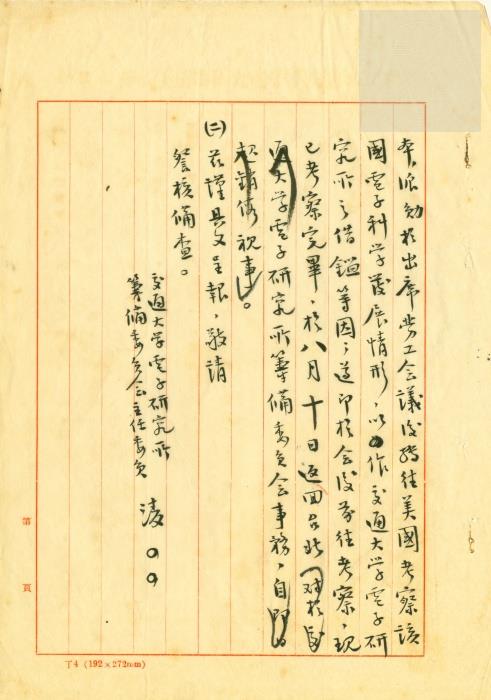 奉派勉於出席勞工会議後轉往美國考察該
國電子科学發展情形，以作交通大学電子研
究所之借鏡等因；遵即於会後前往考察，現
已考察完畢，於八月十日返回台北
通大学電子研究所籌備委員会事務，自
起銷假視事。
(二)茲謹具文呈報，敬請
詧核備查。
交通大学電子研究所
籌備委員会主任委員 凌○○
第 頁
T4 (192×272mm)